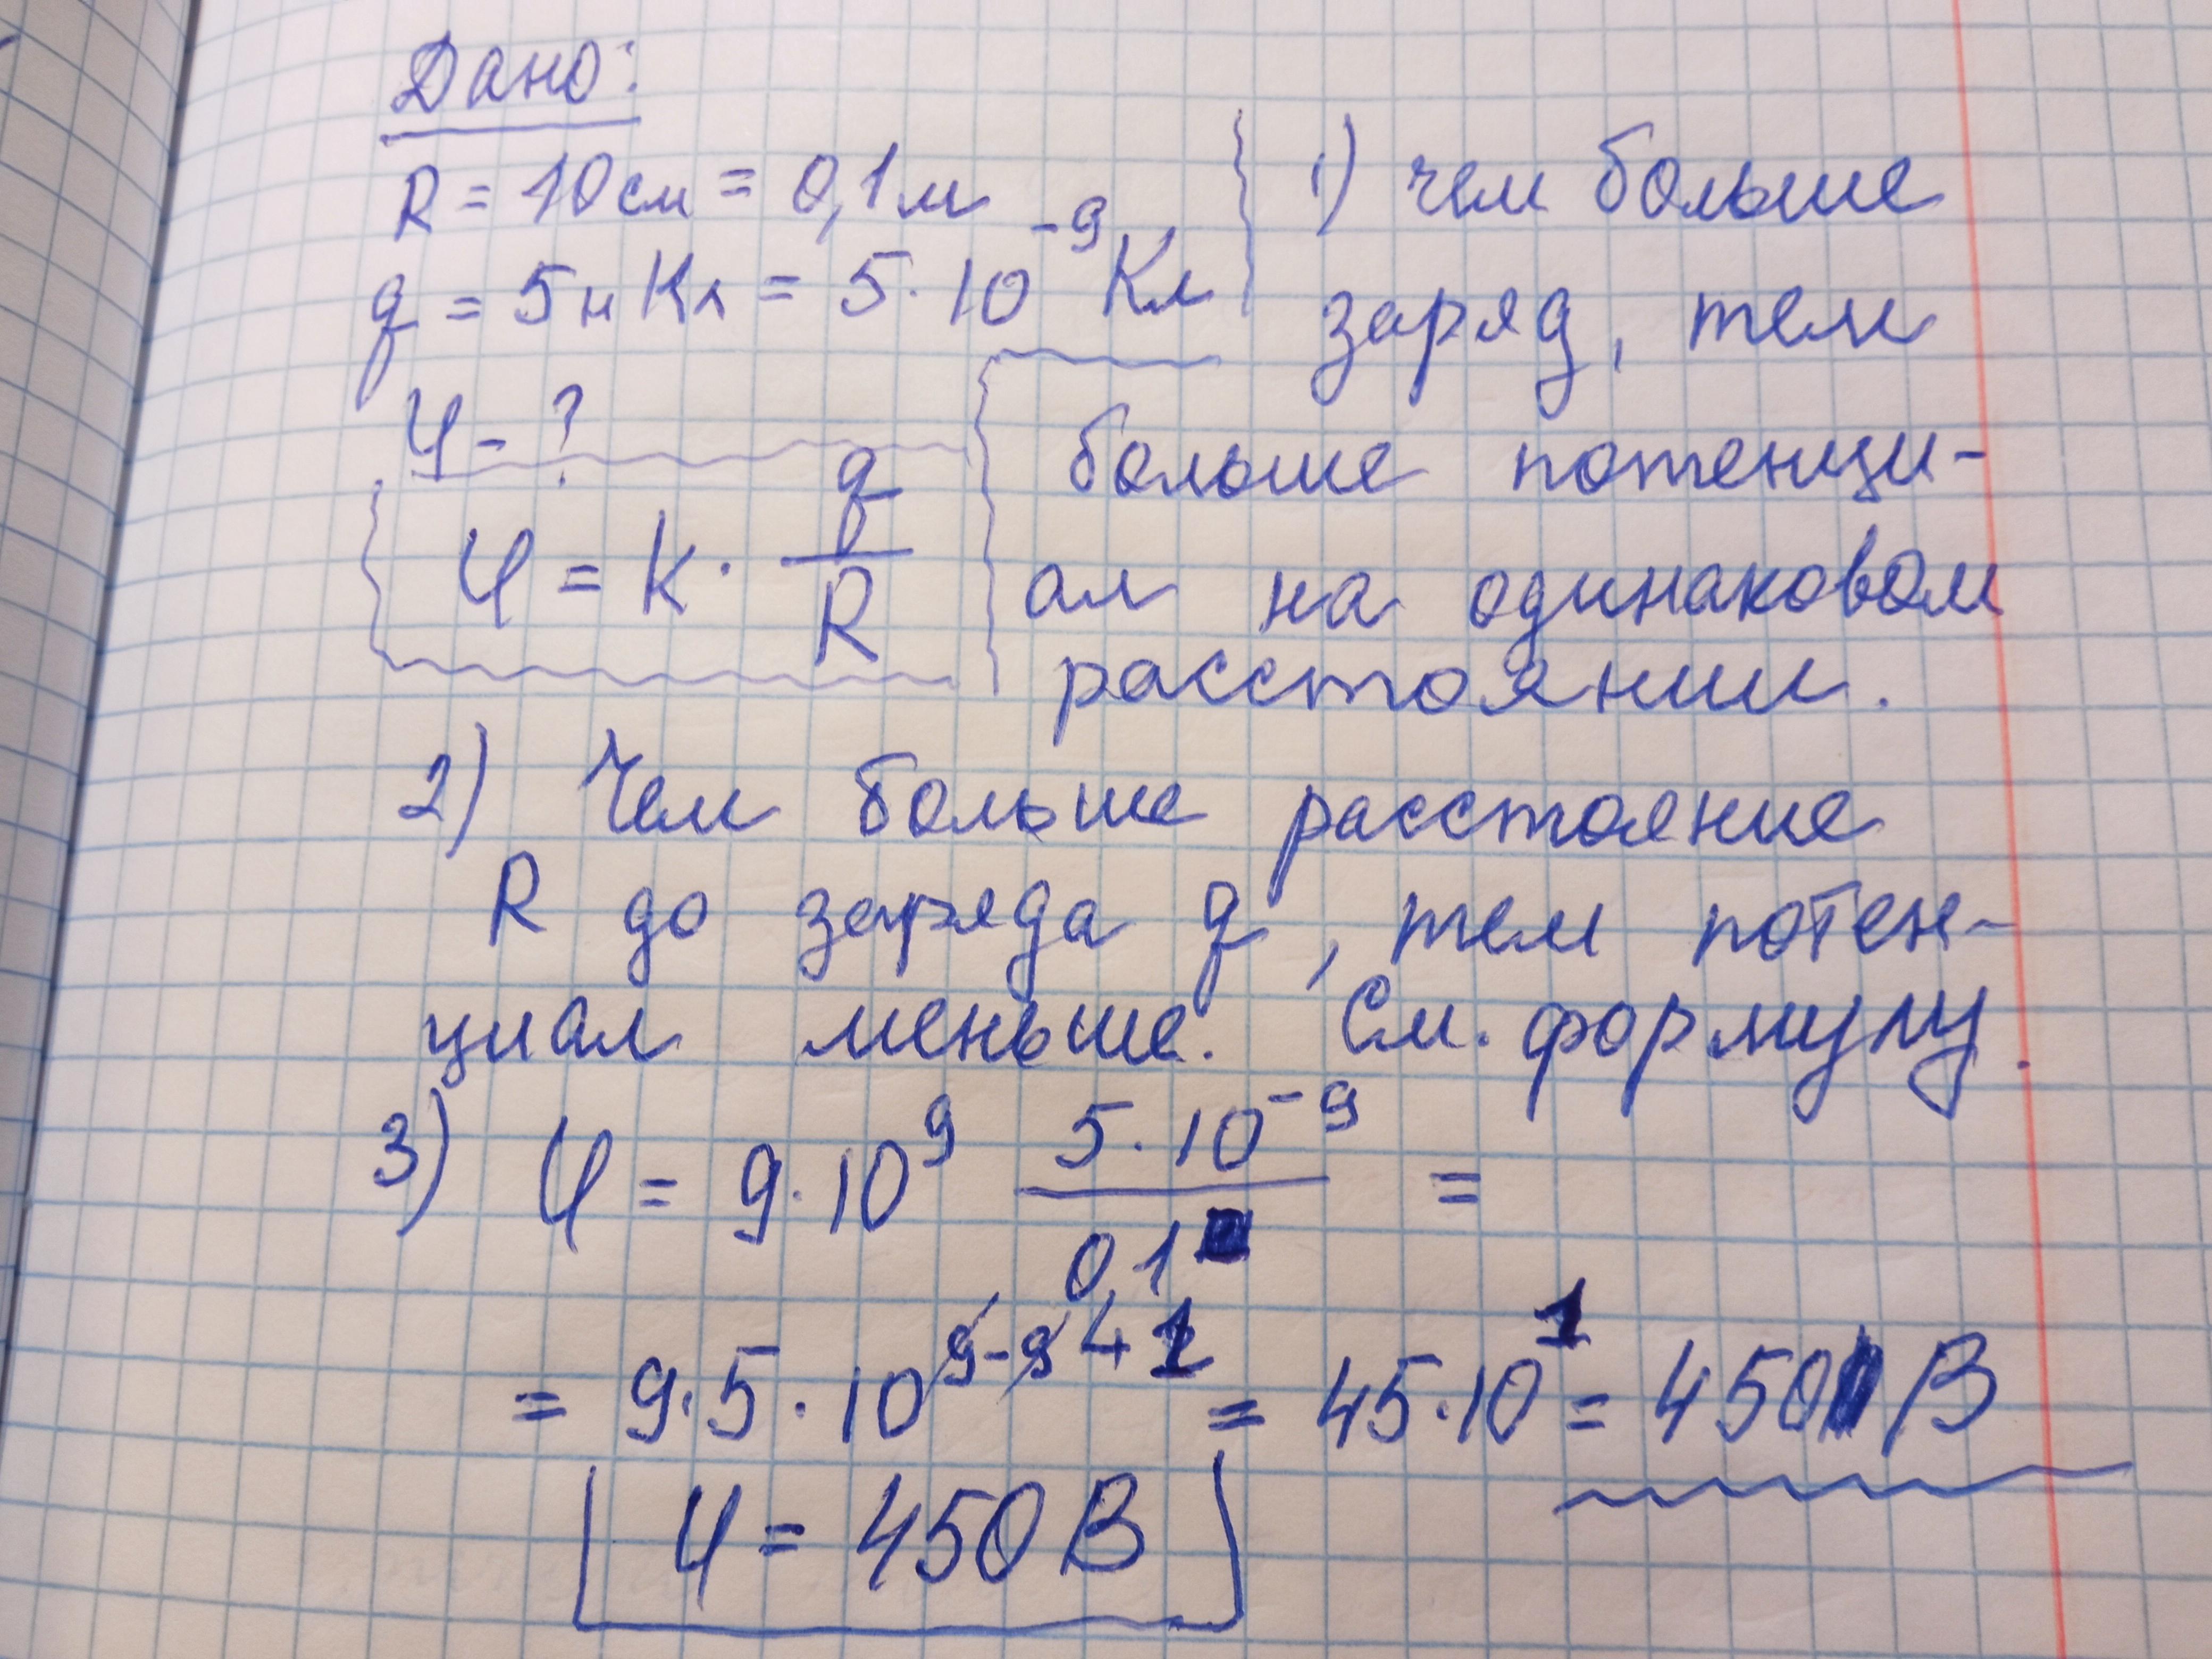 Дано:
R = 10 см = 0,1 м
q = 5 нКл = 5 · 10⁻⁹ Кл
φ - ?
φ = k · q/R
1) чем больше
заряд, тем
больше потенци-
ал на одинаковом
расстоянии.
2) Чем больше расстояние
R до заряда q, тем потен-
циал меньше. См. формулу.
3) φ = 9 · 10⁹ 5 · 10⁻⁹/0,1 =
= 9 · 5 · 10⁹⁻⁹⁺¹ = 45 · 10¹ = 450 В
φ = 450 В